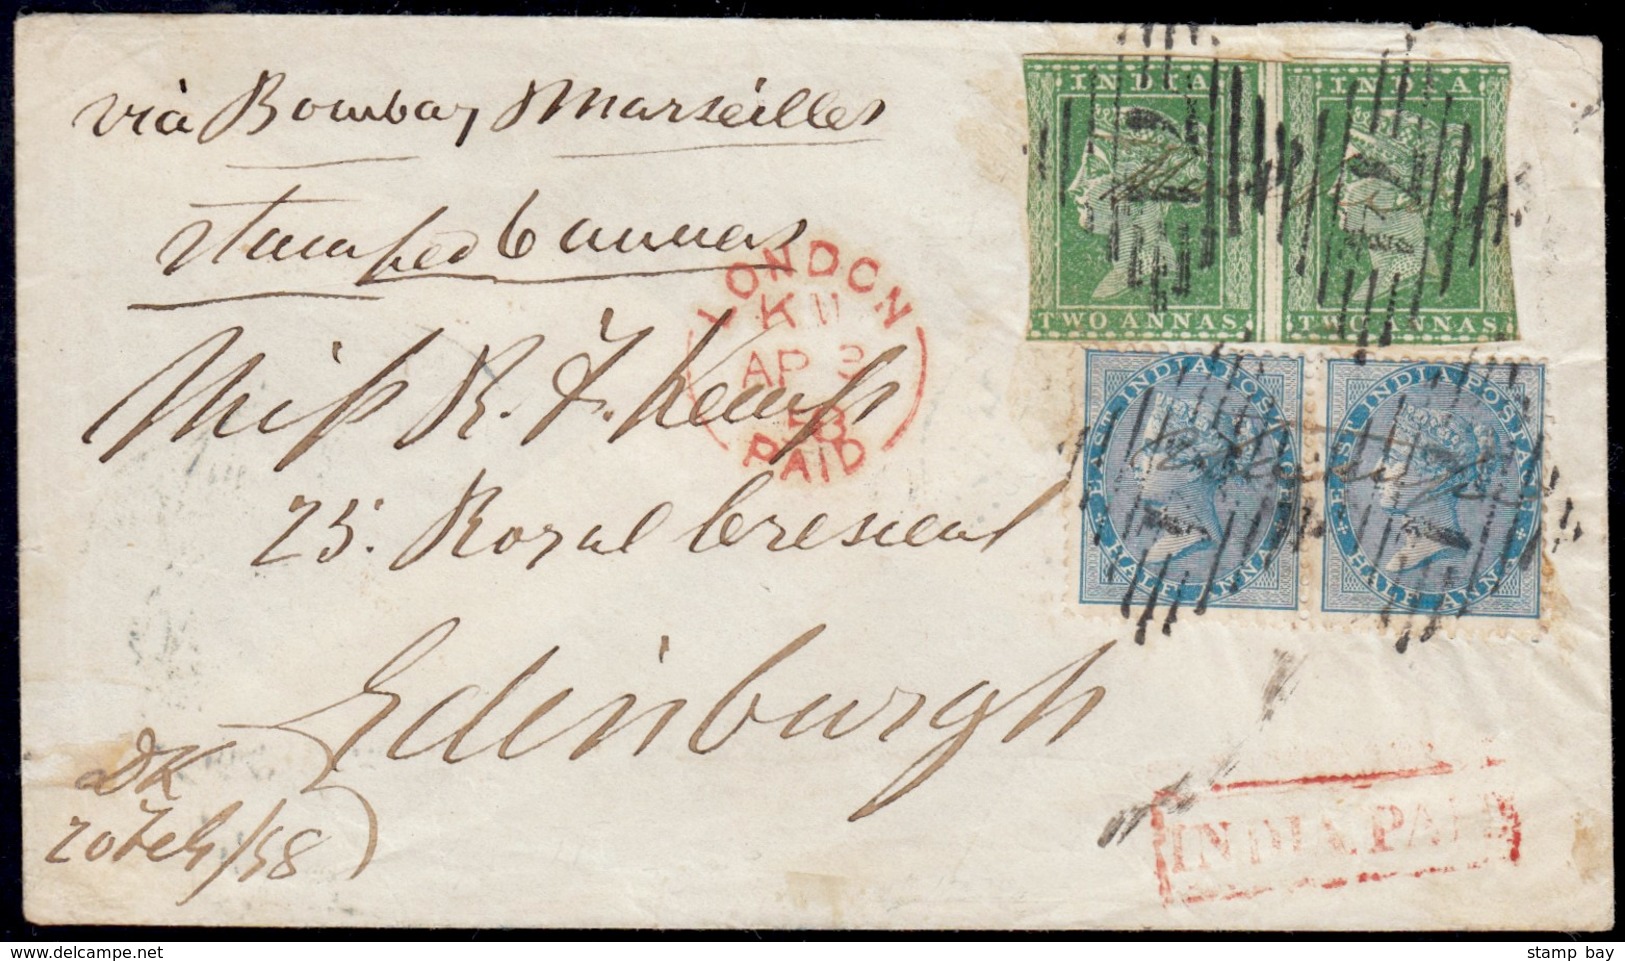 viâ Bombay Marseilles
stamped 6 annas
Miss R. F. Kemp
25. Royal Crescent
Edinburgh
DK
20 Feb/58
LONDON
K 11
AP 3
58
PAID
INDIA INDIA
TWO ANNAS. TWO ANNAS.
EAST INDIA POSTAGE EAST INDIA POSTAGE
HALF ANNA HALF ANNA
INDIA PAID
www.delcampe.net
stamp bay